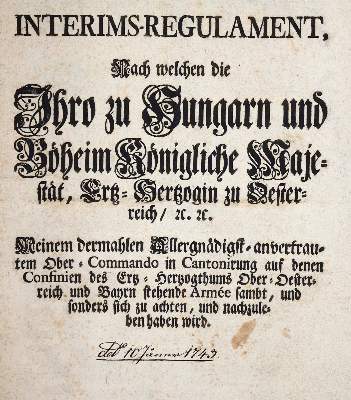 INTERIMS-REGULAMENT,
Nach welchen die
Ihro zu Hungarn und
Böheim Königliche Maje-
stät, Ertz-Hertzogin zu Oester-
reich/ ꝛc. ꝛc.
Meinem dermahlen Allergnädigst-anvertrau-
tem Ober-Commando in Cantonirung auf denen
Confinien des Ertz-Hertzogthums Ober-Oester-
reich und Bayrn stehende Armée sambt, und
sonders sich zu achten, und nachzule-
ben haben wird.
10 Jänner 1743